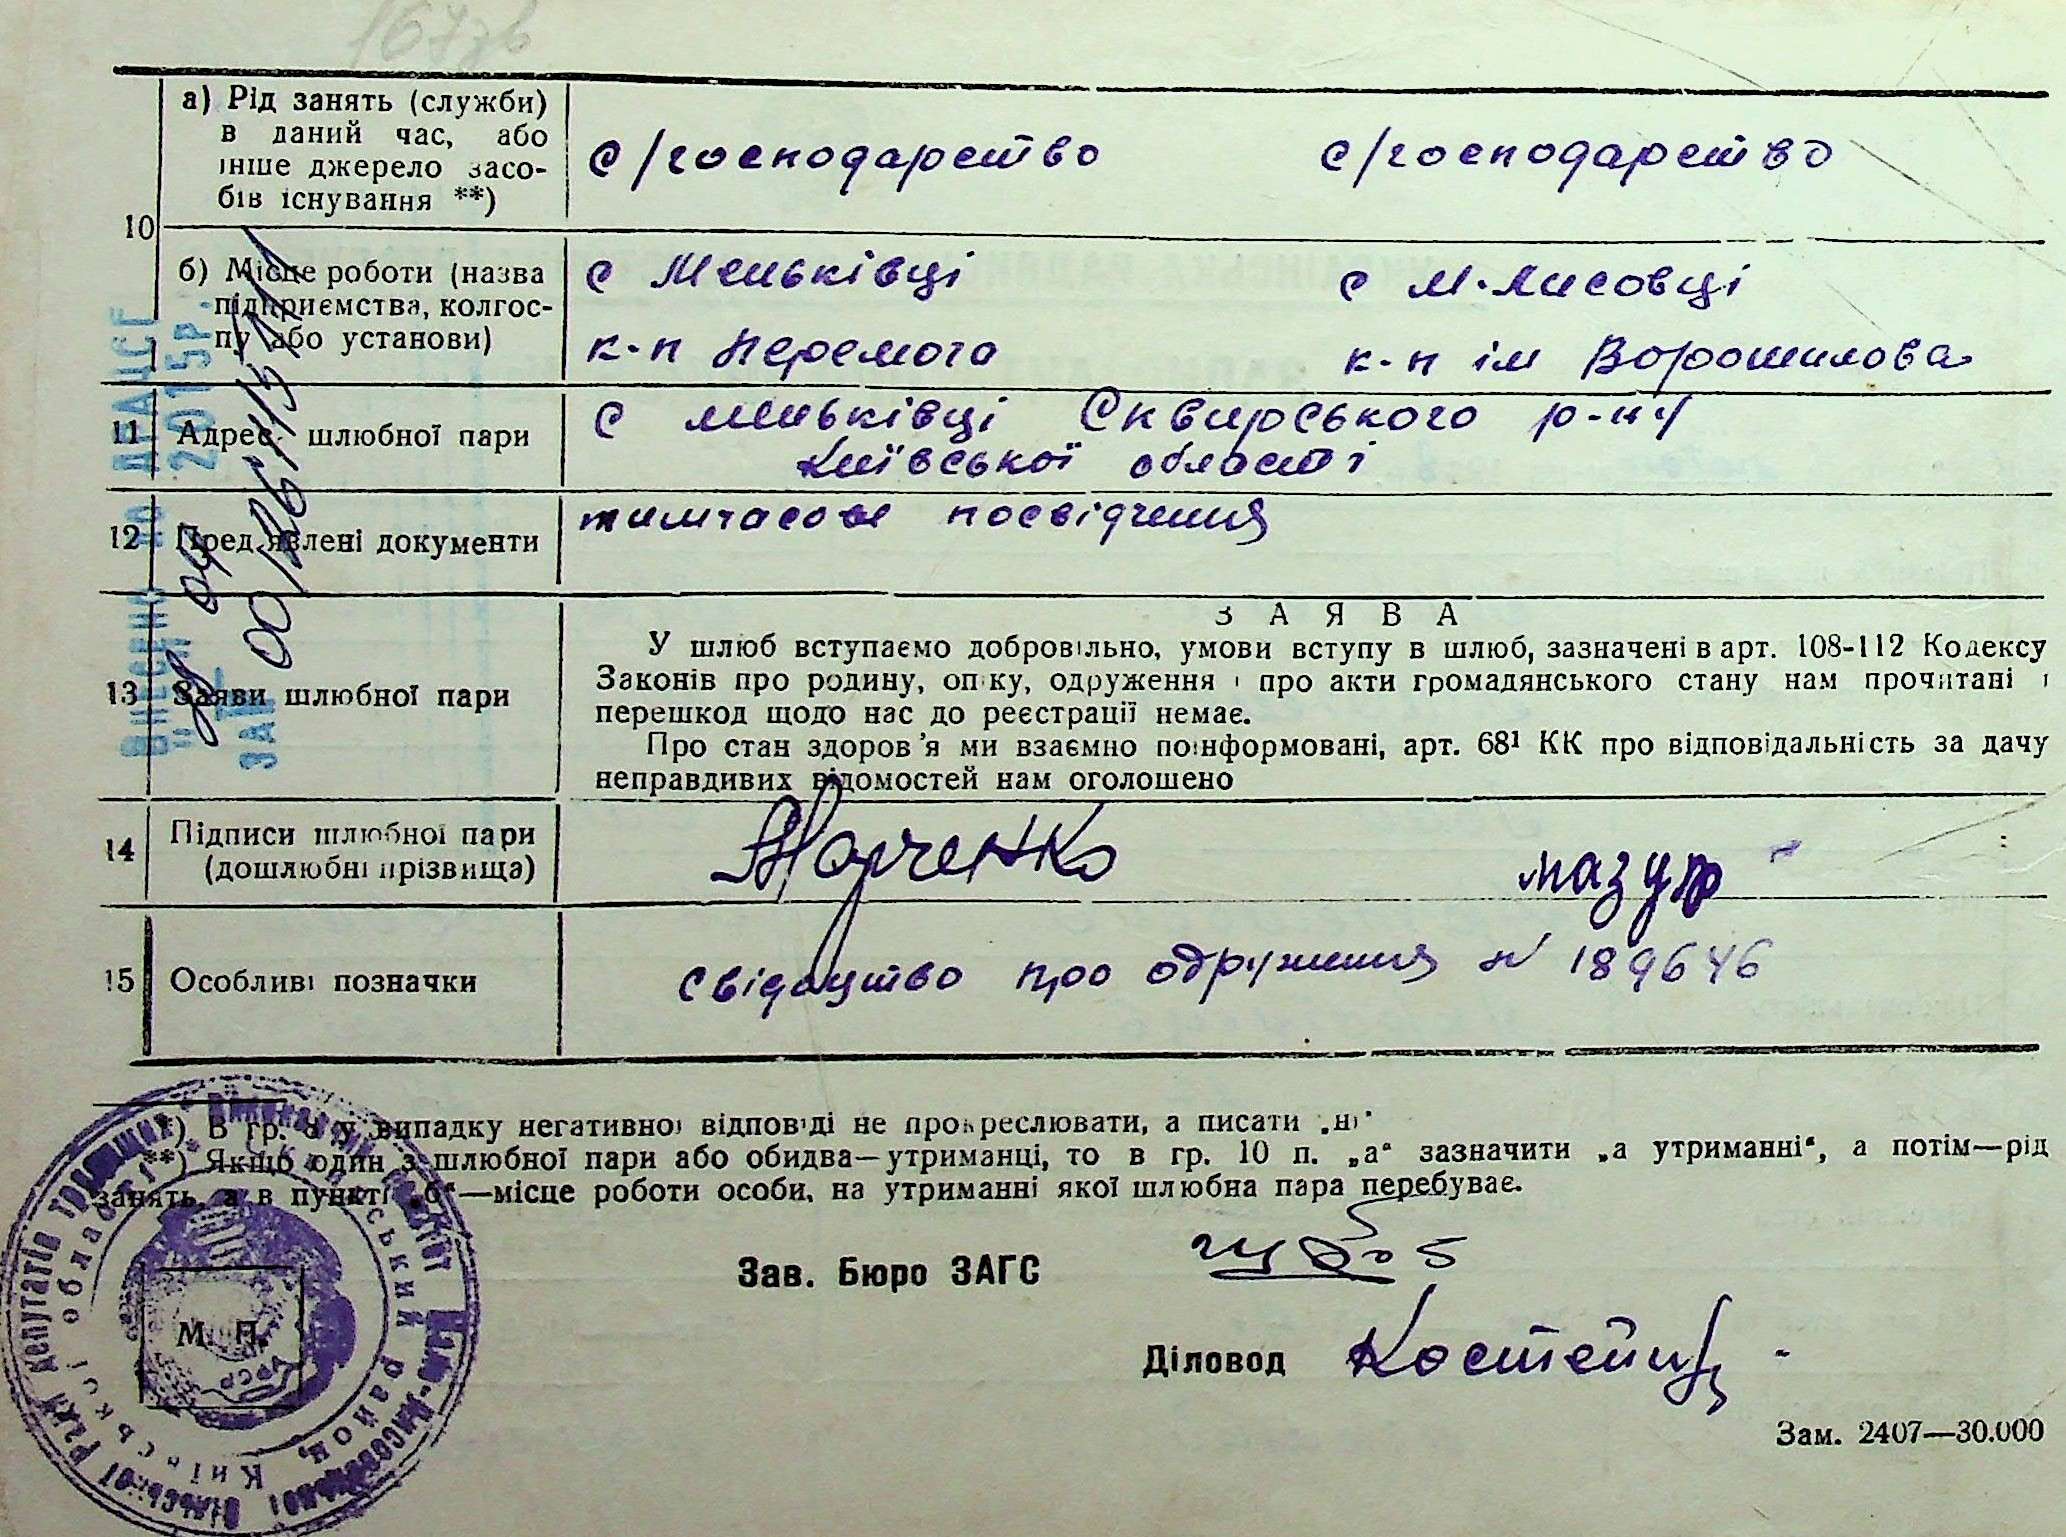 167зв
а) Рід занять (служби)
в даний час, або
інше джерело засо-
бів існування **)
с/господарство
с/господарство
10
б) Місце роботи (назва
підприємства, колгос-
пу або установи)
с Меньківці
к-п Перемога
с М-Лисовці
к-п ім Ворошилова
11
Адрес шлюбної пари
с Меньківці Сквирського р-ну
Київської області
12
Пред'явлені документи
тимчасове посвідчення
13
Заяви шлюбної пари
ЗАЯВА
У шлюб вступаємо добровільно, умови вступу в шлюб, зазначені в арт. 108-112 Кодексу
Законів про родину, опіку, одруження і про акти громадянського стану нам прочитані і
перешкод щодо нас до реєстрації немає.
Про стан здоров'я ми взаємно поінформовані, арт. 68¹ КК про відповідальність за дачу
неправдивих відомостей нам оголошено
14
Підписи шлюбної пари
(дошлюбні прізвища)
Марченко
мазур
15
Особливі позначки
свідоцтво про одруження N 189646
ВНЕСЕНО ДО ДРАЦСГ
" 04 2015р.
ЗА № 00126
*) В гр. 8 у випадку негативної відповіді не прокреслювати, а писати „ні"
**) Якщо один з шлюбної пари або обидва—утриманці, то в гр. 10 п. „а" зазначити „а утриманні", а потім—рід
занять, а в пункті „б"—місце роботи особи, на утриманні якої шлюбна пара перебуває.
Зав. Бюро ЗАГС
Діловод
М. П.
Київської області
район,
Зам. 2407—30.000